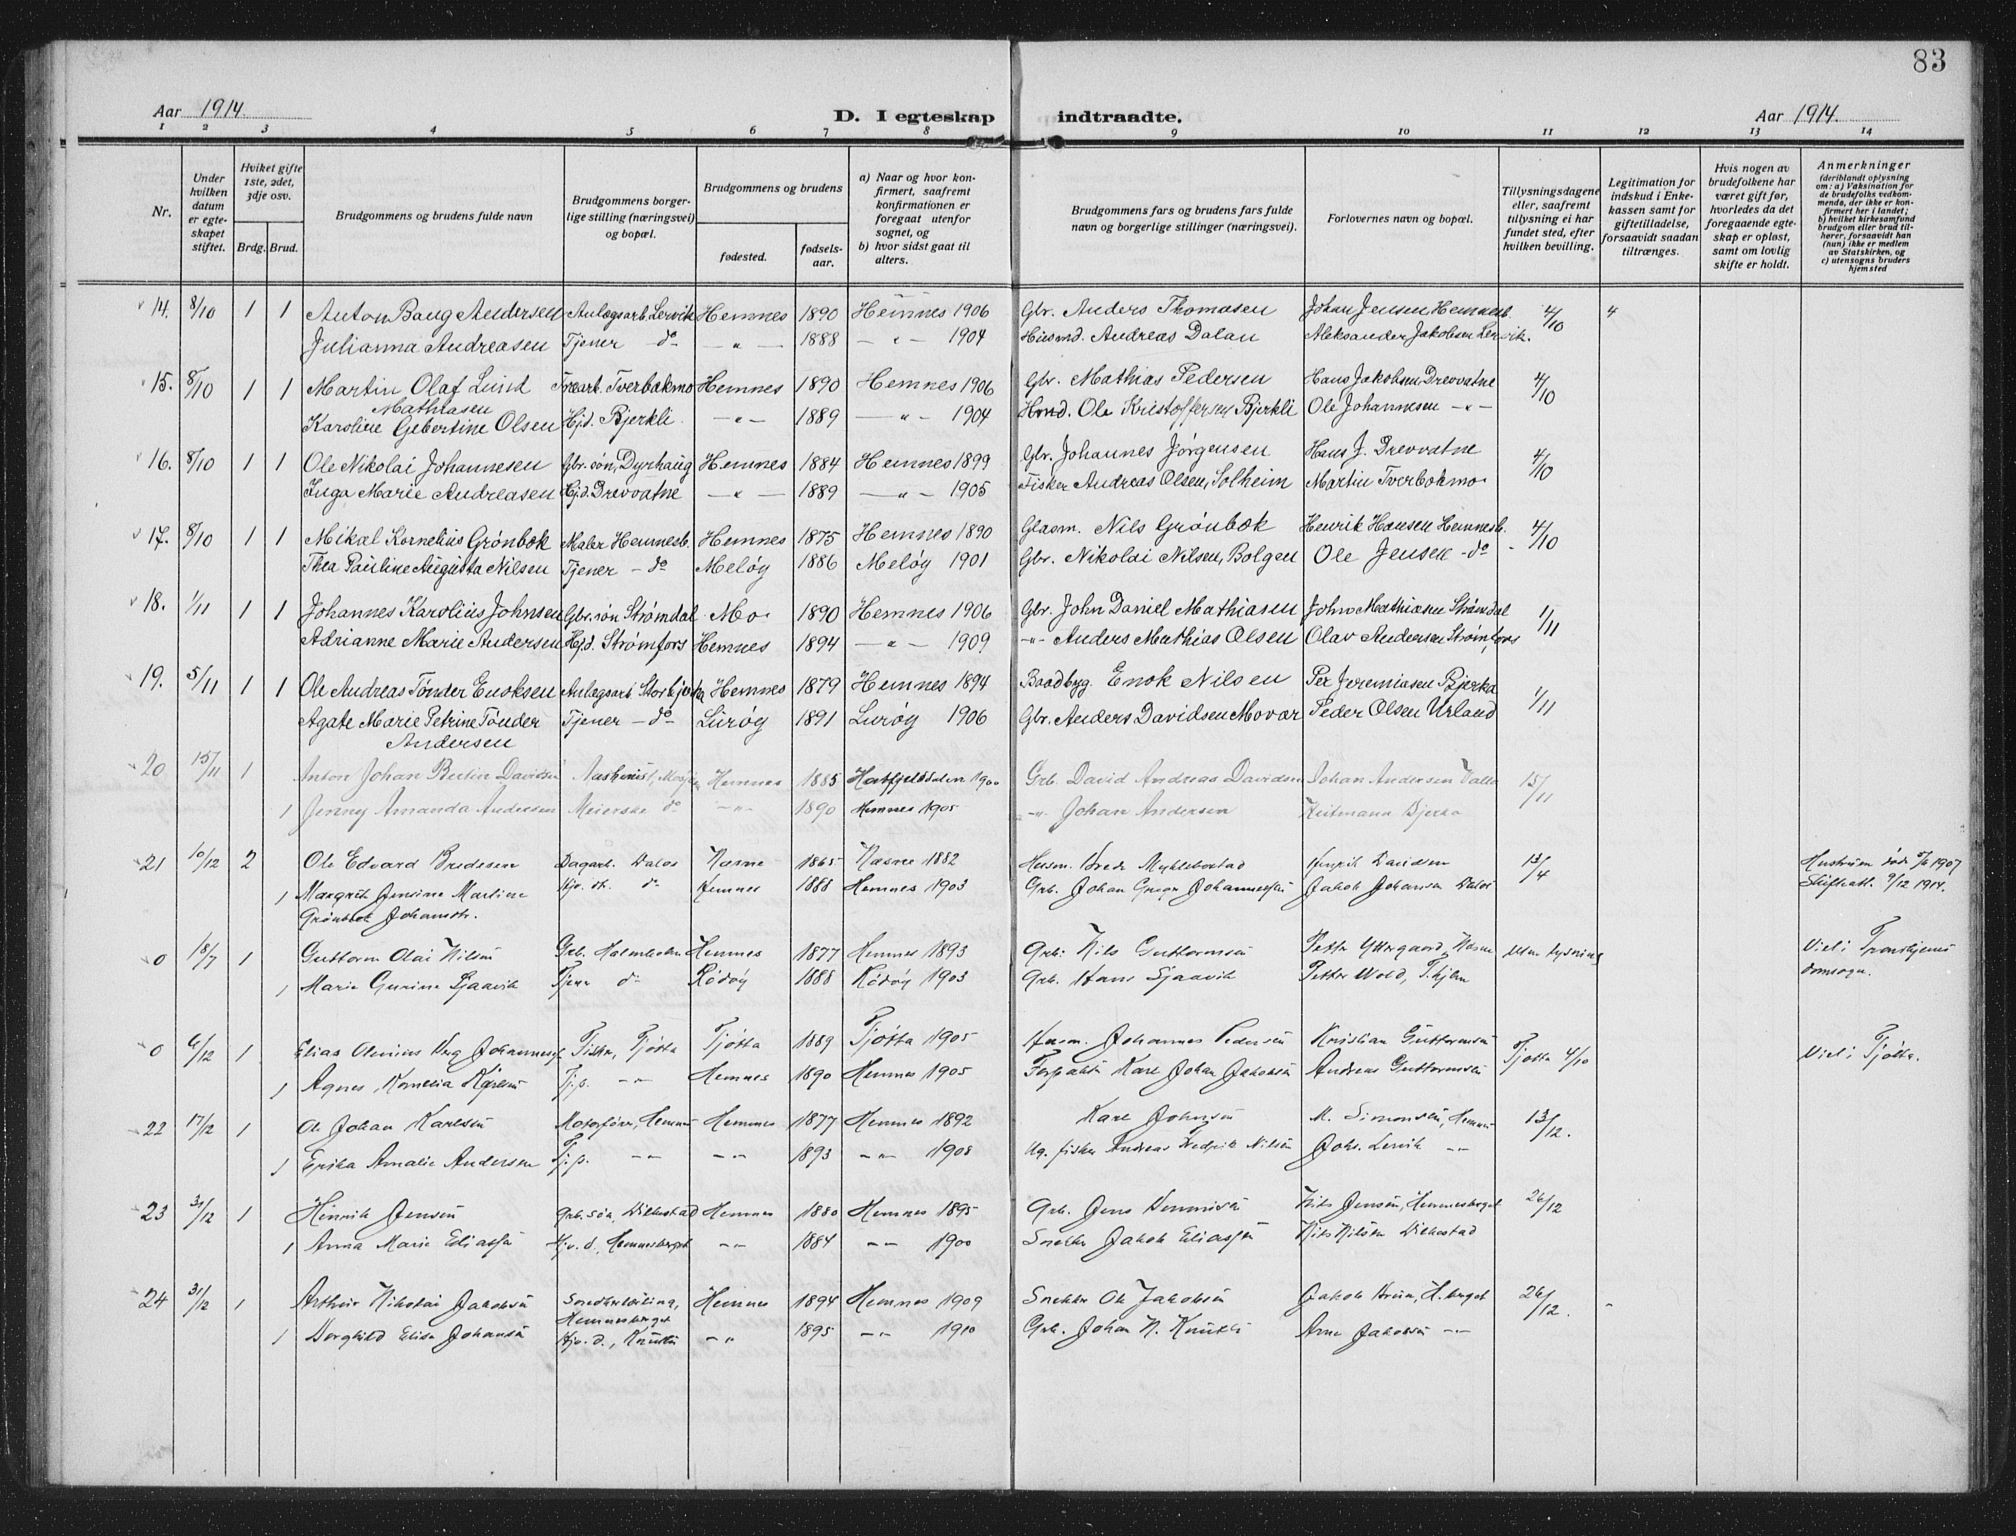 83
Aar 1914.
D. I egteskap indtraadte.
Aar 1914.
1 2 3 4 5 6 7 8 9 10 11 12 13 14
Nr.
Under hvilken datum er egteskapet stiftet.
Hviket gifte 1ste, 2det, 3dje osv.
Brdg. Brud.
Brudgommens og brudens fulde navn
Brudgommens borgerlige stilling (næringsvei) og bopæl.
Brudgommens og brudens
fødested.
fødselsaar.
a) Naar og hvor konfirmert, saafremt konfirmationen er foregaat utenfor sognet, og
b) hvor sidst gaat til alters.
Brudgommens fars og brudens fars fulde navn og borgerlige stillinger (næringsvei).
Forlovernes navn og bopæl.
Tillysningsdagene eller, saafremt tillysning ei har fundet sted, efter hvilken bevilling.
Legitimation for indskud i Enkekassen samt for giftetilladelse, forsaavidt saadan tiltrænges.
Hvis nogen av brudefolkene har været gift før, hvorledes da det foregaaende egteskap er opløst, samt om lovlig skifte er holdt.
Anmerkninger (deriblandt oplysning om: a) Vaksination for de brudefolks vedkommende, der ikke er konfirmert her i landet; b) hvilket kirkesamfund brudgom eller brud tilhører, forsaavidt han (hun) ikke er medlem av Statskirken, og c) utensogns bruders hjemsted
14. 8/10 1 1 Anton Baug Andersen Anlægsarb. Lervik Hemnes 1890 Hemnes 1906 Gbr. Anders Thomasen Johan Jensen Hemnesb. 4/10 4
Julianna Andreasen Tjener - do - " - 1888 - " - 1904 Husmd. Andreas Dalan Aleksander Jakobsen Lervik.
15. 8/10 1 1 Martin Olaf Lund Træarb. Tverbakmo Hemnes 1890 Hemnes 1906 Gbr. Mathias Pedersen Hans Jakobsen Drevvatne 4/10
Mathiasen
Karoline Gebertine Olsen Hjd. Bjerkli - " - 1889 - " - 1904 Hmd. Ole Kristoffersen Bjerkli Ole Johannesen - " -
16. 8/10 1 1 Ole Nikolai Johannesen Gbr. søn, Dyrhaug Hemnes 1884 Hemnes 1899 Gbr. Johannes Jørgensen Hans J. Drevvatne 4/10
Inga Marie Andreasen Hjd. Drevvatne - " - 1889 - " - 1905 Fisker Andreas Olsen, Solheim Martin Tverbakmo
17. 8/10 1 1 Mikal Kornelius Grønbæk Maler Hemnesb. Hemnes 1875 Hemnes 1890 Glasm. Nils Grønbæk Henrik Hansen Hemnesb. 4/10
Thea Pauline Augusta Nilsen Tjener - do Meløy 1886 Meløy 1901 Gbr. Nikolai Nilsen, Bolgen Ole Jensen - do -
18. 1/11 1 1 Johannes Karolius Johnsen Gbr. søn Strømdal Mo 1890 Hemnes 1906 Gbr. John Daniel Mathiasen John Mathiasen Strømdal 1/11
Adrianne Marie Andersen Hjd. Strømfors Hemnes 1894 - " - 1909 - " - Anders Mathias Olsen Olav Andersen Strømfors
19. 5/11 1 1 Ole Andreas Tønder Enoksen Anlægsarb. Storbjerka Hemnes 1879 Hemnes 1894 Baadbyg. Enok Nilsen Per Jeremiasen Bjerka 1/11
Agate Marie Petrine Tønder Tjener - do - Lurøy 1891 Lurøy 1906 Gbr. Anders Davidsen Movær Peder Olsen Urland
Andersen
20 15/11 1 Anton Johan Bertin Davidsen Hemnes 1885 Hatfjelddalen 1900 Grb. David Andreas Davidsen Johan Andersen 15/11
1 Jenny Amanda Andersen Meierske do - " - 1890 Hemnes 1905 - " - Johan Andersen Bjerka
21 10/12 2 Ole Edvard Bredesen Dagarb. Dalos Næsne 1865 Næsne 1882 Husm. Brede Myklebostad Henrik Davidsen 13/4 Hustruen død 1907
1 Margrethe Jensine Martine Hjv. dt. do Hemnes 1888 Hemnes 1903 Grb. Johan Johannessen Jakob Johansen Dalos Skifteatt. 9/12 1914.
Grønbæk Johansdtr.
0 18/7 1 Guttorm Olai Nilsen Grb. Holmholm Hemnes 1877 Hemnes 1893 Grb. Nils Guttormsen Petter Yttergaard, Næsne uten lysning Viet i Trondhjems
1 Marie Gurine Sjaavik Tjener do Rødøy 1888 Rødøy 1903 Grb. Hans Sjaavik Petter Wold, Thjem domsogn.
0 6/12 1 Elias Berg Johannesen Fisker, Tjøtta Tjøtta 1889 Tjøtta 1905 Husm. Johannes Pedersen Kristian Guttormsen Tjøtta 4/10 Viet i Tjøtta.
1 Agnes Kornelia Karlsen Tj.p. - " - Hemnes 1890 Hemnes 1905 Karl Johan Jakobsen Andreas Guttormsen
22 17/12 1 Ole Johan Karlsen Motorfører, Hemnes Hemnes 1877 Hemnes 1892 Karl Johnsen M. Simonsen, Hemnes 13/12.
1 Erika Amalie Andersen Tj.p. - " - - " - 1893 - " - 1908 Ug. fisker Andreas Fredrik Nilsen Johs. Lervik - " -
23 31/12 1 Hinrik Jensen Grb. søn, Dilkestad Hemnes 1880 Hemnes 1895 Grb. Jens Nils Jensen, Hemnesberget 26/12
1 Anna Marie Eliassen Hjv. d., Hemnesberget - " - 1884 - " - 1900 Snekker Jakob Eliassen Nils Nilsen Dilkestad
24 31/12 1 Arthur Nikolai Jakobsen Snedkerlærling, Hemnes 1894 Hemnes 1909 Snekker Ole Jakobsen Jakob Bruun, H.berget 26/12.
Hemnesberget
1 Borghild Elise Johansen Hjv. d., Knutli - " - 1895 - " - 1910 Grb. Johan N. Knutli Arne Jakobsen - " -